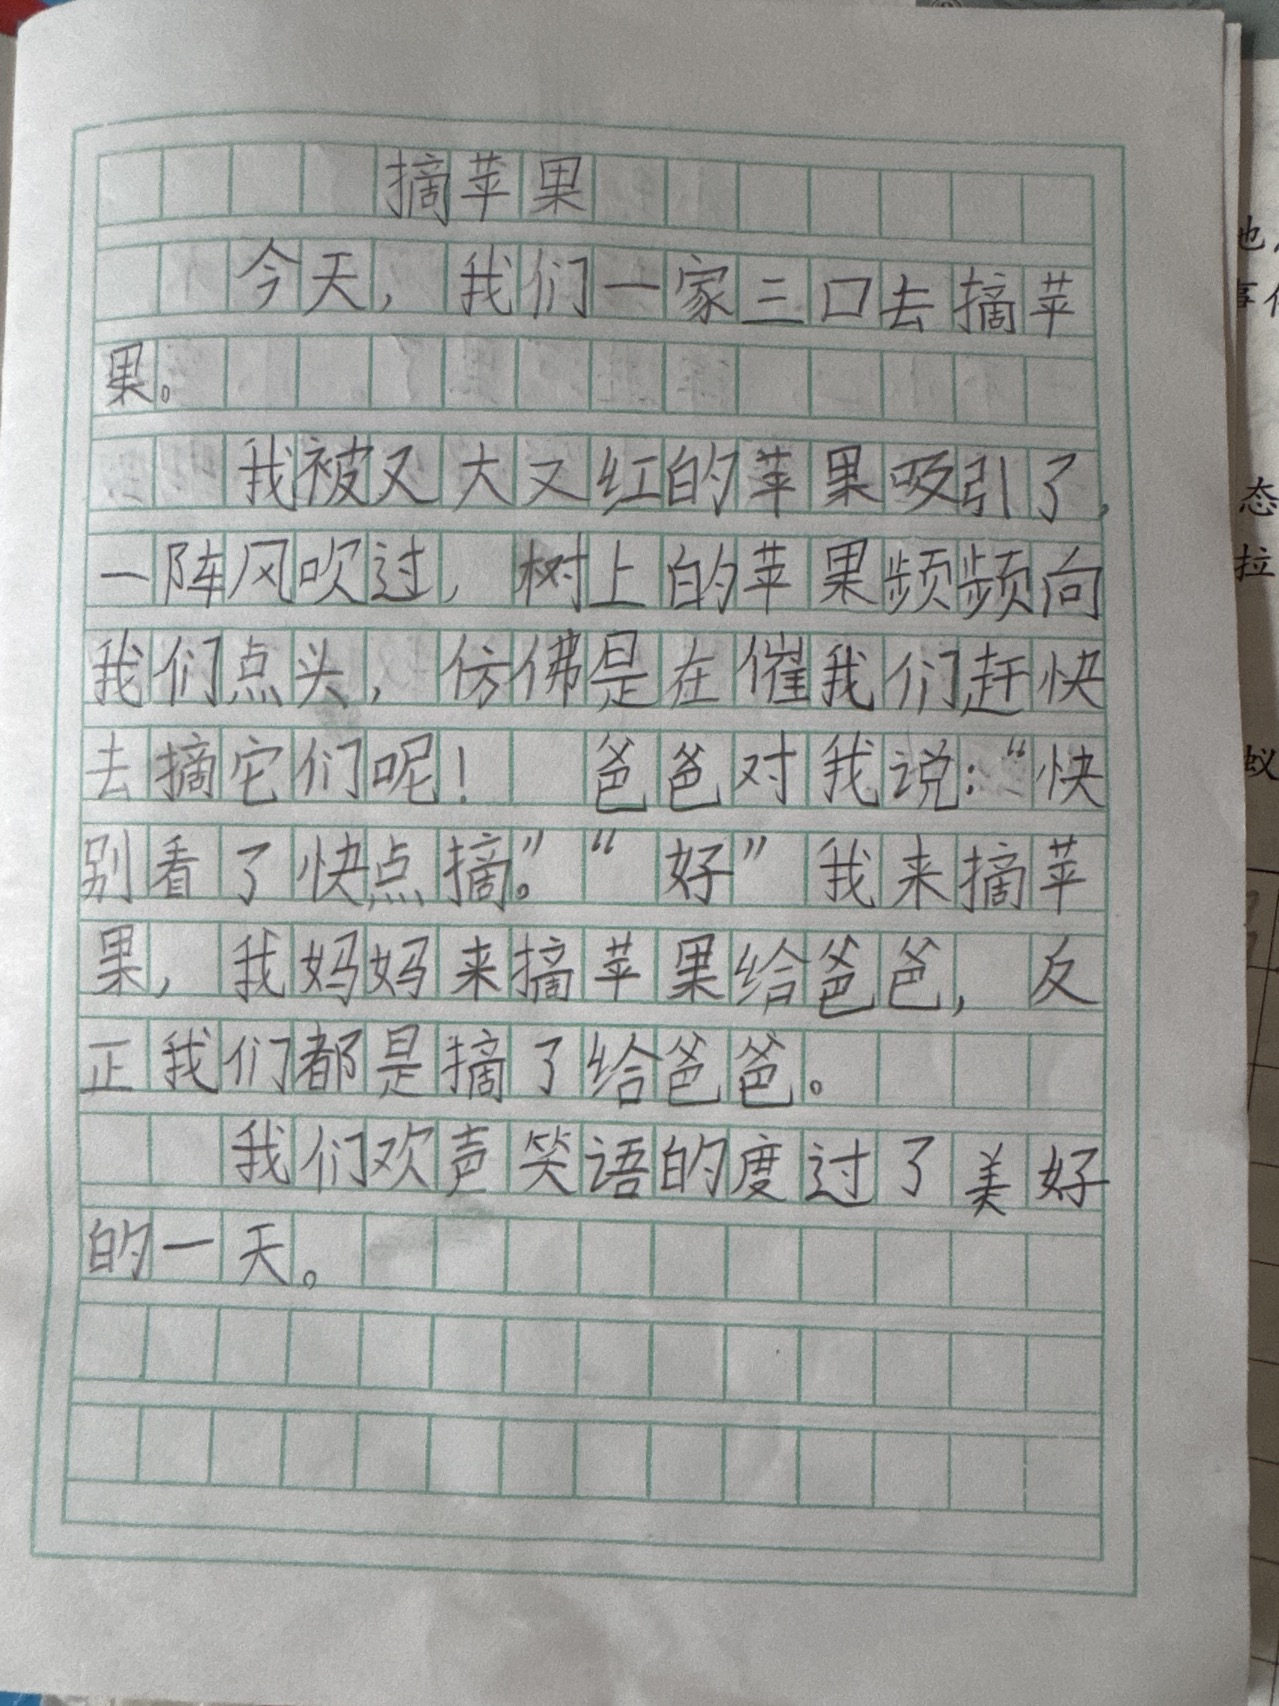 摘苹果
今天，我们一家三口去摘苹
果。
我被又大又红的苹果吸引了，
一阵风吹过，树上的苹果频频向
我们点头，仿佛是在催我们赶快
去摘它们呢！爸爸对我说：“快
别看了快点摘。”“好”我来摘苹
果，我妈妈来摘苹果给爸爸，反
正我们都是摘了给爸爸。
我们欢声笑语的度过了美好
的一天。
态
拉
蚁